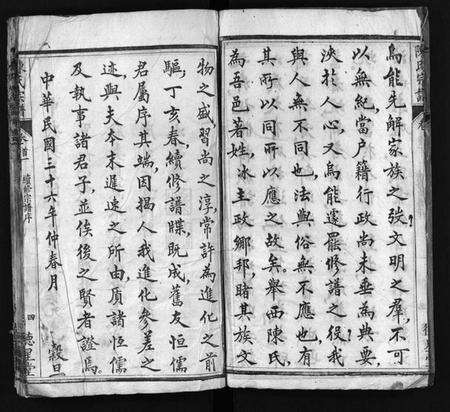 烏能先解家族之弢文明之羣不可
以無紀當户籍行政尚未垂為典要
浹於人心又烏能遽羅修譜之役我
與人無不同也法與俗無不應也有
其所以同所以應之故矣舉西陳氏
為吾邑著姓冰主政鄉邦睹其族文
物之盛習尚之淳常許為進化之前
驅丁亥春續修譜牒既成舊友恒儒
君屬序其端因揭人我進化參差之
迹與夫本末遲速之所由質諸恒儒
及執事諸君子並俟後之賢者證焉
中華民國三十六年仲春月 穀旦
卷首
續修宗譜序
四